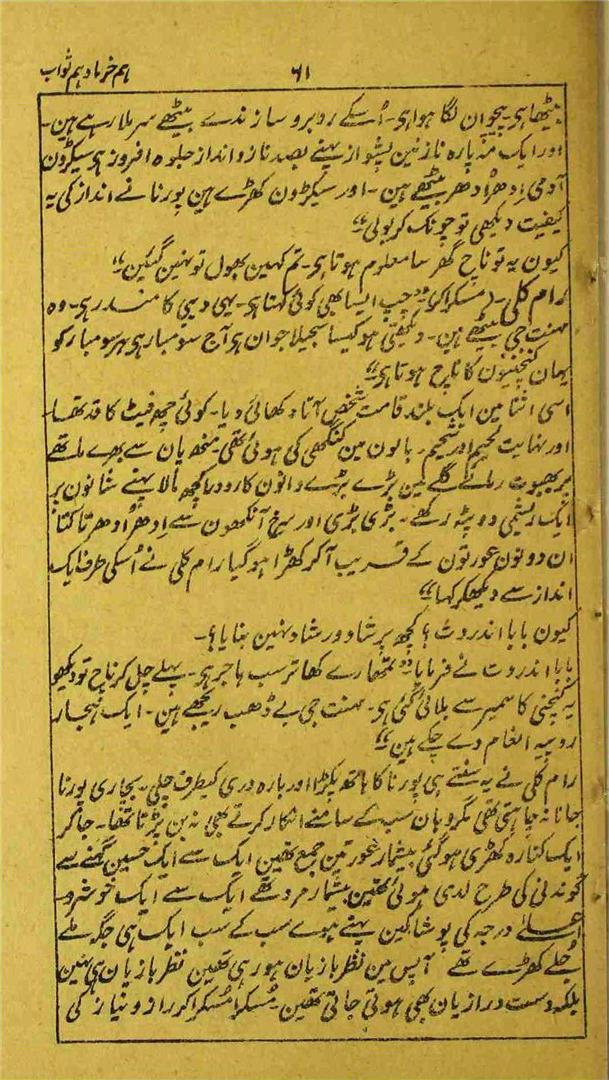 ہم خرما و ہم ثواب
۶۱
بیٹھا ہی۔ پیچوان لگا ہوا ہی۔ اُسکے روبرو سازندے بیٹھے سر ملا رہے ہین۔
اور ایک مہ پارہ نازنین پشواز پہنے بصد ناز و انداز جلوہ افروز ہی سیکڑون
آدمی اِدھر اُدھر بیٹھے ہین۔ اور سیکڑون کھڑے ہین پورنا نے انداز کی یہ
کیفیت دیکھی تو چونک کر بولی“
کیون یہ تو ناچ گھر سا معلوم ہوتا ہی۔ تم کہین بھول تو نہین گئین“
رام کلی۔ (مسکرا کر) ”چپ ایسا بھی کوئی کہتا ہی۔ یہی دیبی کا مندر ہی۔ وہ
مہنت جی بیٹھے ہین۔ دیکھتی ہو کیسا سجیلا جوان ہی آج سومبار ہی ہر سومبار کو
یہان کنچنیون کا ناچ ہوتا ہی“
اسی اثنا مین ایک بلند قامت شخص آتا دکھائی دیا۔ کوئی چھ فیٹ کا قد تھا۔
اور نہایت لحیم و شحیم۔ بالون مین کنگھی کی ہوئی تھی۔ منھ پان سے بھرے ماتھے
پر بھبوت رمائے گلے مین بڑے بڑے دانون کا رودراکچھ مالا پہنے شانون پر
ایک ریشمی دوپٹہ رکھے۔ بڑی بڑی اور سرخ آنکھون سے اِدھر اُدھر تاکتا
ان دونون عورتون کے قریب آکر کھڑا ہو گیا رام کلی نے اُسکی طرف ایک
انداز سے دیکھکر کہا“
کیون بابا اندردت؟ کچھ پرشاد ورشاد نہین بنایا؟۔
بابا اندردت نے فرمایا ”تمھارے کھاتر سب ہاجر ہی۔ پہلے چل کر ناچ تو دیکھو
یہ کنچنی کاسمیر سے بلائی گئی ہی۔ مہنت جی بے ڈھب ریجھے ہین۔ ایک ہجار
روپیہ انعام دے چکے ہین“
رام کلی نے یہ سنتے ہی پورنا کا ہاتھ پکڑا اور بارہ دری کیطرف چلی۔ بیچاری پورنا
جانا نہ چاہتی تھی مگر وہان سب کے سامنے انکار کرتے بھی نہ بن پڑتا تھا۔ جاکر
ایک کنارہ کھڑی ہو گئی بیشمار عورتین جمع تھین ایک سے ایک حسین گہنے سے
گوندنی کی طرح لدی ہوئی تھین بیشمار مرد تھے ایک سے ایک خوشرو۔
اعلےٰ درجہ کی پوشاکین پہنے ہوے سب کے سب ایک ہی جگہ ملے
جلے کھڑے تھے آپس مین نظر بازیان ہو رہی تھین نظر بازیان ہی نہین
بلکہ دست درازیان بھی ہوتی جاتی تھین۔ مُسکرا مُسکرا کر راز و نیاز کی